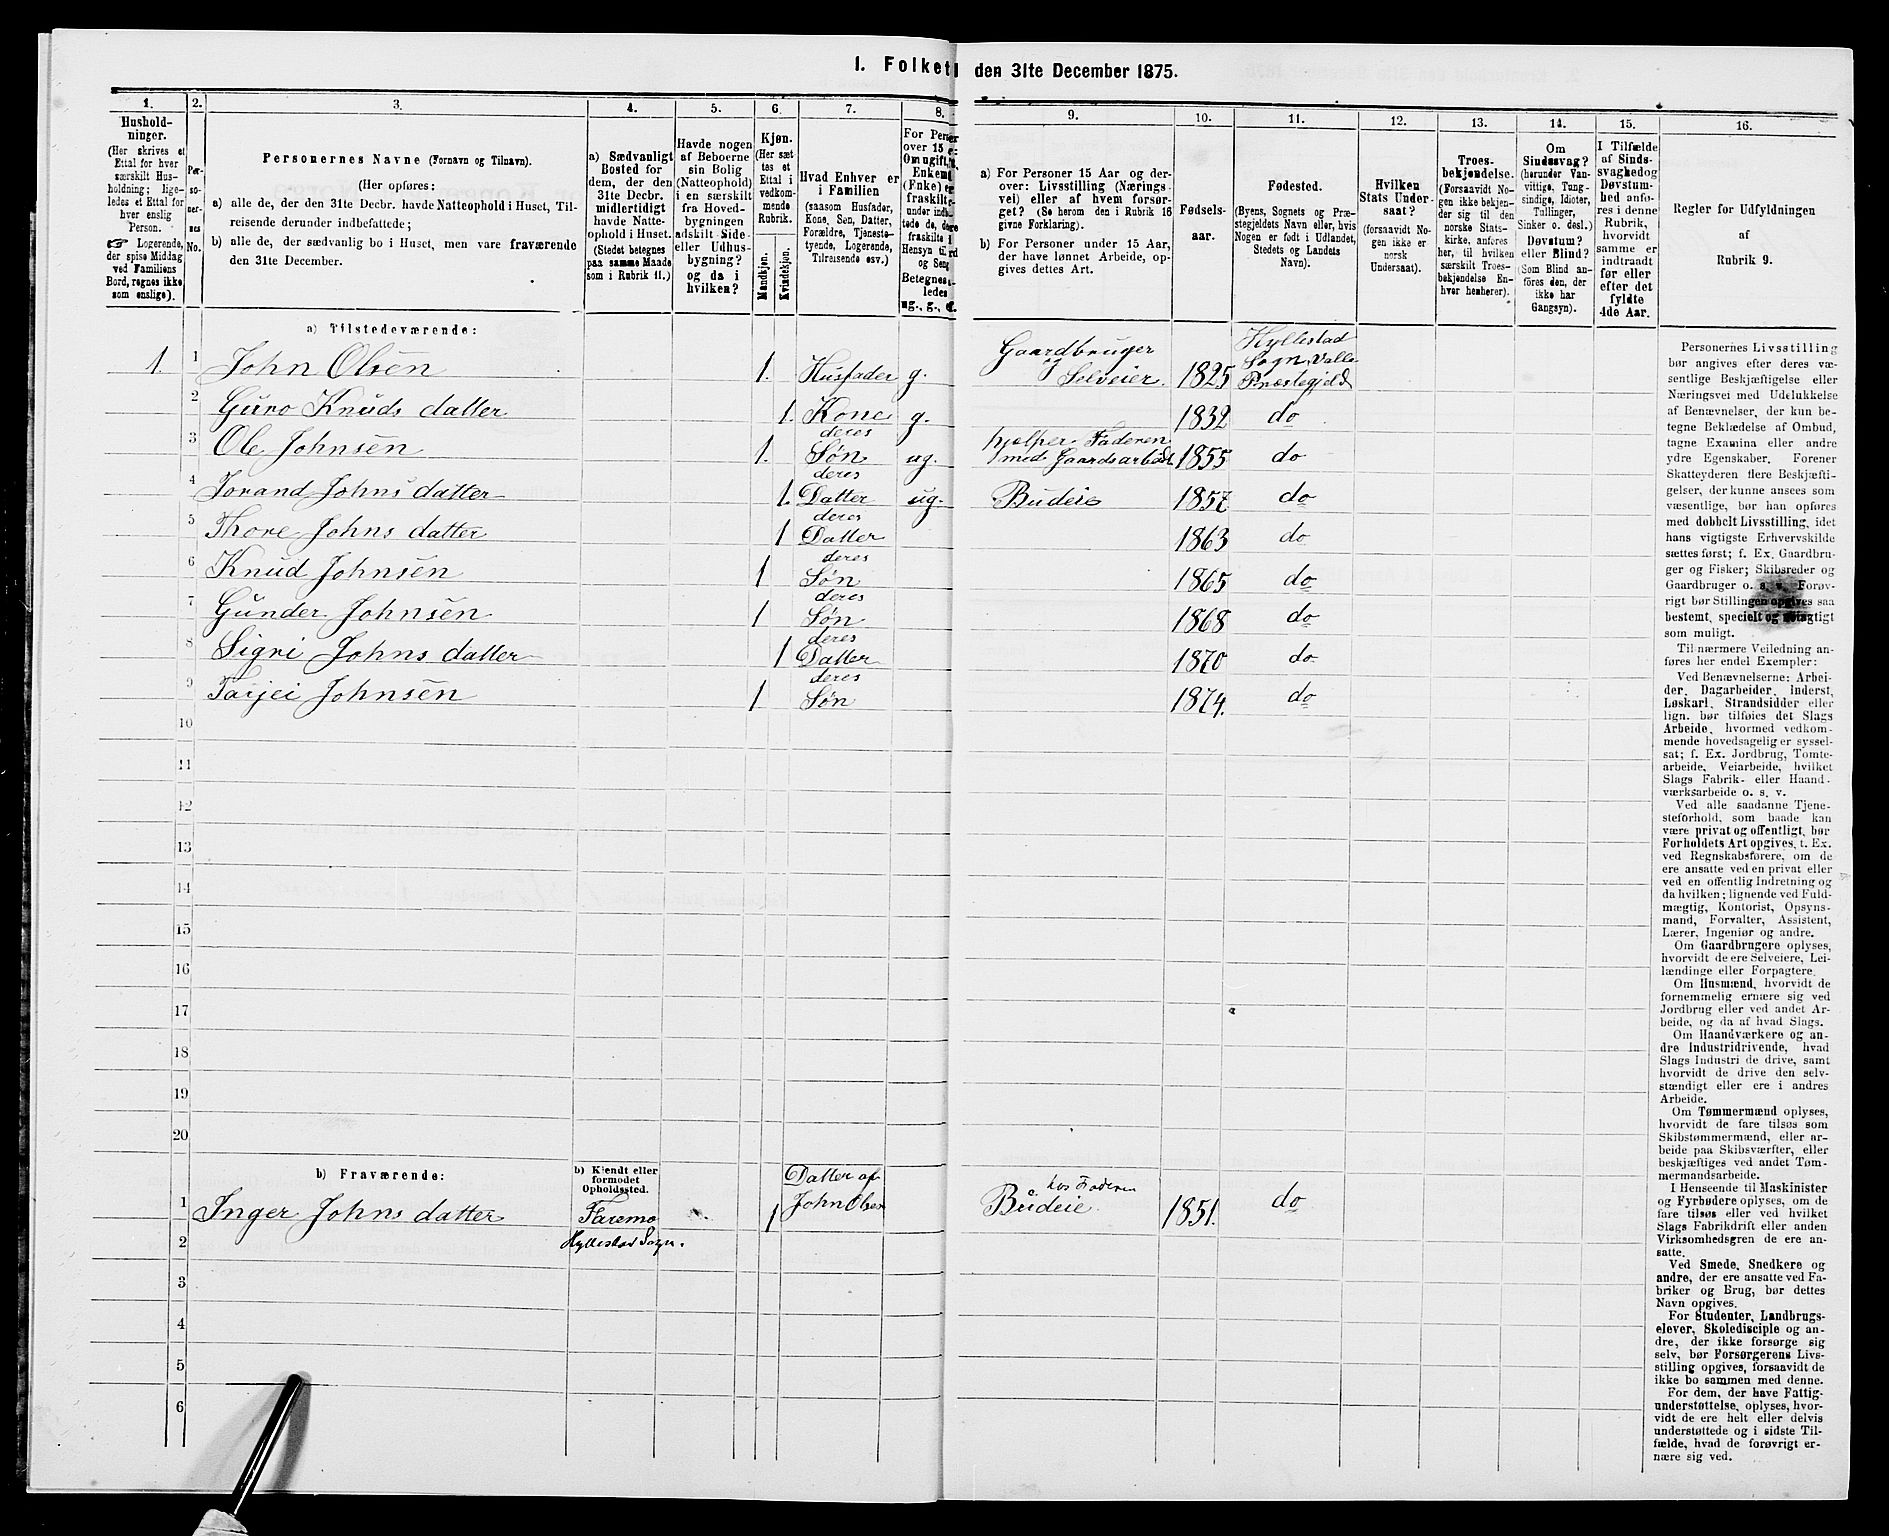 I. Folket den 31te December 1875.
1. 2. 3. 4. 5. 6. 7. 8. 9. 10. 11. 12. 13. 14. 15. 16.
Hushold-
ninger.
(Her skrives et
Ettal for hver
særskilt Hus-
holdning; lige-
ledes et Ettal for
hver enslig
Person.
☞ Logerende,
der spise Middag
ved Familiens
Bord, regnes ikke
som enslige).
Per-
so-
ner-
nes
No.
Personernes Navne (Fornavn og Tilnavn).
(Her opføres:
a) alle de, der den 31te Decbr. havde Natteophold i Huset, Til-
reisende derunder indbefattede;
b) alle de, der sædvanlig bo i Huset, men vare fraværende
den 31te December.
a) Sædvanligt
Bosted for
dem, der den
31te Decbr.
midlertidigt
havde Natte-
ophold i Huset.
(Stedet betegnes
paa samme Maade
som i Rubrik 11.)
Havde nogen
af Beboerne
sin Bolig
(Natteophold)
i en særskilt
fra Hoved-
bygningen
adskilt Side-
eller Udhus-
bygning?
og da i
hvilken?
Kjøn.
(Her sæt
tes et
Ettal i
vedkom-
mende
Rubrik.
Mandkjøn.
Kvindekjøn.
Hvad Enhver er
i Familien
(saasom Husfader,
Kone, Søn, Datter,
Forældre, Tjeneste-
tyende, Logerende,
Tilreisende osv.)
For Person
over 15
Om ugift,
Enkem
(Enke) e
fraskilt
under ind
tede de,
fraskilte
Hensyn til
og Seng
Betegnes
ledes
ug., g.,
a) For Personer 15 Aar og der-
over: Livsstilling (Nærings-
vei) eller af hvem forsør-
get? (Se herom den i Rubrik 16
givne Forklaring).
b) For Personer under 15 Aar,
der have lønnet Arbeide, op-
gives dettes Art.
Fødsels-
aar.
Fødested.
(Byens, Sognets og Præ-
stegjeldets Navn eller, hvis
Nogen er født i Udlandet,
Stedets og Landets
Navn).
Hvilken
Stats Under-
saat?
(forsaavidt No-
gen ikke er
norsk
Undersaat).
Troes-
bekjendelse.
(Forsaavidt No-
gen ikke bekjen-
der sig til den
norske Stats-
kirke, anføres
her, til hvilken
særskilt Troes-
bekjendelse En-
hver henhører).
Om
Sindssvag?
(herunder Van-
vittige, Tung-
sindige, Idioter,
Tullinger,
Sinker o. desl.)
Døvstum?
eller Blind?
(Som Blind an-
føres den, der
ikke har
Gangsyn).
I Tilfælde
af Sinds-
svaghed og
Døvstum-
hed anfø-
res i denne
Rubrik,
hvorvidt
samme er
indtraadt
før eller
efter det
fyldte
4de Aar.
Regler for Udfyldningen
af
Rubrik 9.
a) Tilstedeværende:
1 1 John Olsen 1. Husfader g. Gaardbruger og Selveier. 1825 Hyllestad Sogn, Valle Præstegjeld
2 Guro Knuds datter 1. Kone g. 1832 do
3 Ole Johnsen 1. deres Søn ug. hjelper Faderen med Gaardsarbeide 1855 do
4 Torand Johns datter 1. deres Datter ug. Budeie 1857 do
5 Thore Johns datter 1 deres Datter 1863 do
6 Knud Johnsen 1 deres Søn 1865 do
7 Gunder Johnsen 1 deres Søn 1868 do
8 Sigri Johns datter 1 deres Datter 1870 do
9 Tarjei Johnsen 1 deres Søn 1874. do
10
11
12
13
14
15
16
17
18
19
20
b) Fraværende:
b) Kjendt eller
formodet
Opholdssted.
1 Inger Johns datter Faremo Hyllestad Sogn. 1 Datter af John Olsen Budeie hos Faderen 1851. do
2
3
4
5
6
Personernes Livsstilling
bør angives efter deres væ-
sentlige Beskjæftigelse eller
Næringsvei med Udelukkelse
af Benævnelser, der kun be-
tegne Beklædelse af Ombud,
tagne Examina eller andre
ydre Egenskaber. Forener
Skatteyderen flere Beskjæfti-
gelser, der kunne ansees som
væsentlige, bør han opføres
med dobbelt Livsstilling, idet
hans vigtigste Erhvervskilde
sættes først; f. Ex. Gaardbru-
ger og Fisker; Skibsreder og
Gaardbruger o. s. v. Forøv-
rigt bør Stillingen opgives saa
bestemt, specielt og nøiagtigt
som muligt.
Til nærmere Veiledning an-
føres her endel Exempler:
Ved Benævnelserne: Arbei-
der, Dagarbeider, Inderst,
Løskarl, Strandsidder eller
lign. bør tilføies det Slags
Arbeide, hvormed vedkom-
mende hovedsagelig er syssel-
sat; f. Ex. Jordbrug, Tomte-
arbeide, Veiarbeide, hvilket
Slags Fabrik- eller Haand-
værksarbeide o. s. v.
Ved alle saadanne Tjene-
steforhold, som baade kan
være privat og offentligt, bør
Forholdets Art opgives, t. Ex.
ved Regnskabsførere, om de
ere ansatte ved en privat eller
ved en offentlig Indretning og
da hvilken; lignende ved Fuld-
mægtig, Kontorist, Opsyns-
mand, Forvalter, Assistent,
Lærer, Ingeniør og andre.
Om Gaardbrugere oplyses,
hvorvidt de ere Selveiere, Lei-
lændinge eller Forpagtere.
Om Husmænd, hvorvidt de
fornemmelig ernære sig ved
Jordbrug eller ved andet Ar-
beide, og da af hvad Slags.
Om Haandværkere og an-
dre Industridrivende, hvad
Slags Industri de drive, samt
hvorvidt de drive den selv-
stændigt eller ere i andres
Arbeide.
Om Tømmermænd oplyses,
hvorvidt de fare tilsøs som
Skibstømmermænd, eller ar-
beide paa Skibsværfter, eller
beskjæftiges ved andet Tøm-
mermandsarbeide.
I Henseende til Maskinister
og Fyrbødere oplyses, om de
fare tilsøs eller ved hvilket
Slags Fabrikdrift eller anden
Virksomhedsgren de ere an-
satte.
Ved Smede, Snedkere og
andre, der ere ansatte ved Fa-
briker og Brug, bør dettes
Navn opgives.
For Studenter, Landbrugs-
elever, Skoledisciple og an-
dre, der ikke forsørge sig
selv, bør Forsørgerens Livs-
stilling opgives, forsaavidt de
ikke bo sammen med denne.
For dem, der have Fattig-
understøttelse, oplyses, hvor-
vidt de ere helt eller delvis
understøttede og i sidste Til-
fælde, hvad de forøvrigt er-
nære sig ved.